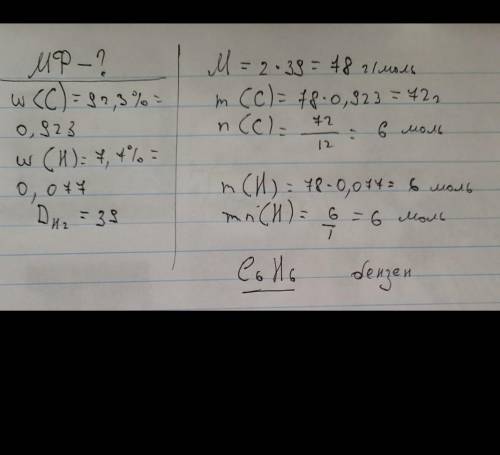 МФ-?
w(C)=92,3%=
0,923
w(H)=7,7%=
0,077
D H2 = 39
M = 2·39 = 78 г/моль
m(C)=78·0,923=72г
n(C)= 72/12 = 6 моль
n(H)=78·0,077=6 моль
mn(H)= 6/1 = 6 моль
C6H6 бензен